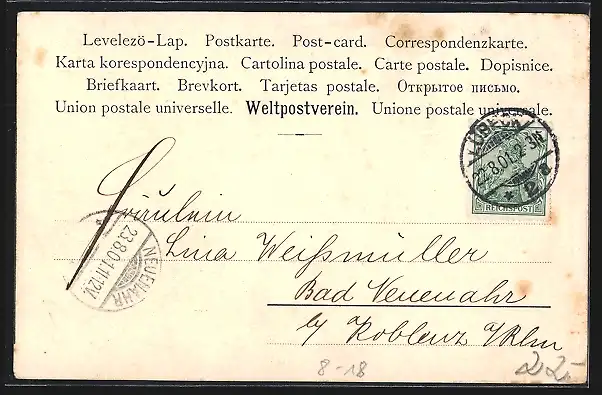 Levelezö-Lap. Postkarte. Post-card. Correspondenzkarte.
Karta korespondencyjna. Cartolina postale. Carte postale. Dopisnice.
Briefkaart. Brevkort. Tarjetas postale. Открытое письмо.
Union postale universelle. Weltpostverein. Unione postale universale.
LÜBECK
22.8.01. 2-3N
* 2 a
REICHSPOST
Fräulein
Lina Weißmüller
Bad Neuenahr
b/ Koblenz a/Rhn
NEUENAHR
23.8.01.11-12V.
8-18